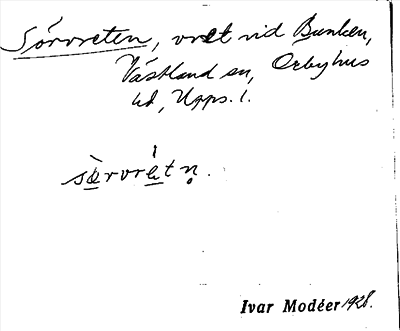 Sörvreten, vret vid Bunken,
Västland sn, Örbyhus
hd, Upps. l.
sœ̀rvrétn̥.
Ivar Modéer 1928.